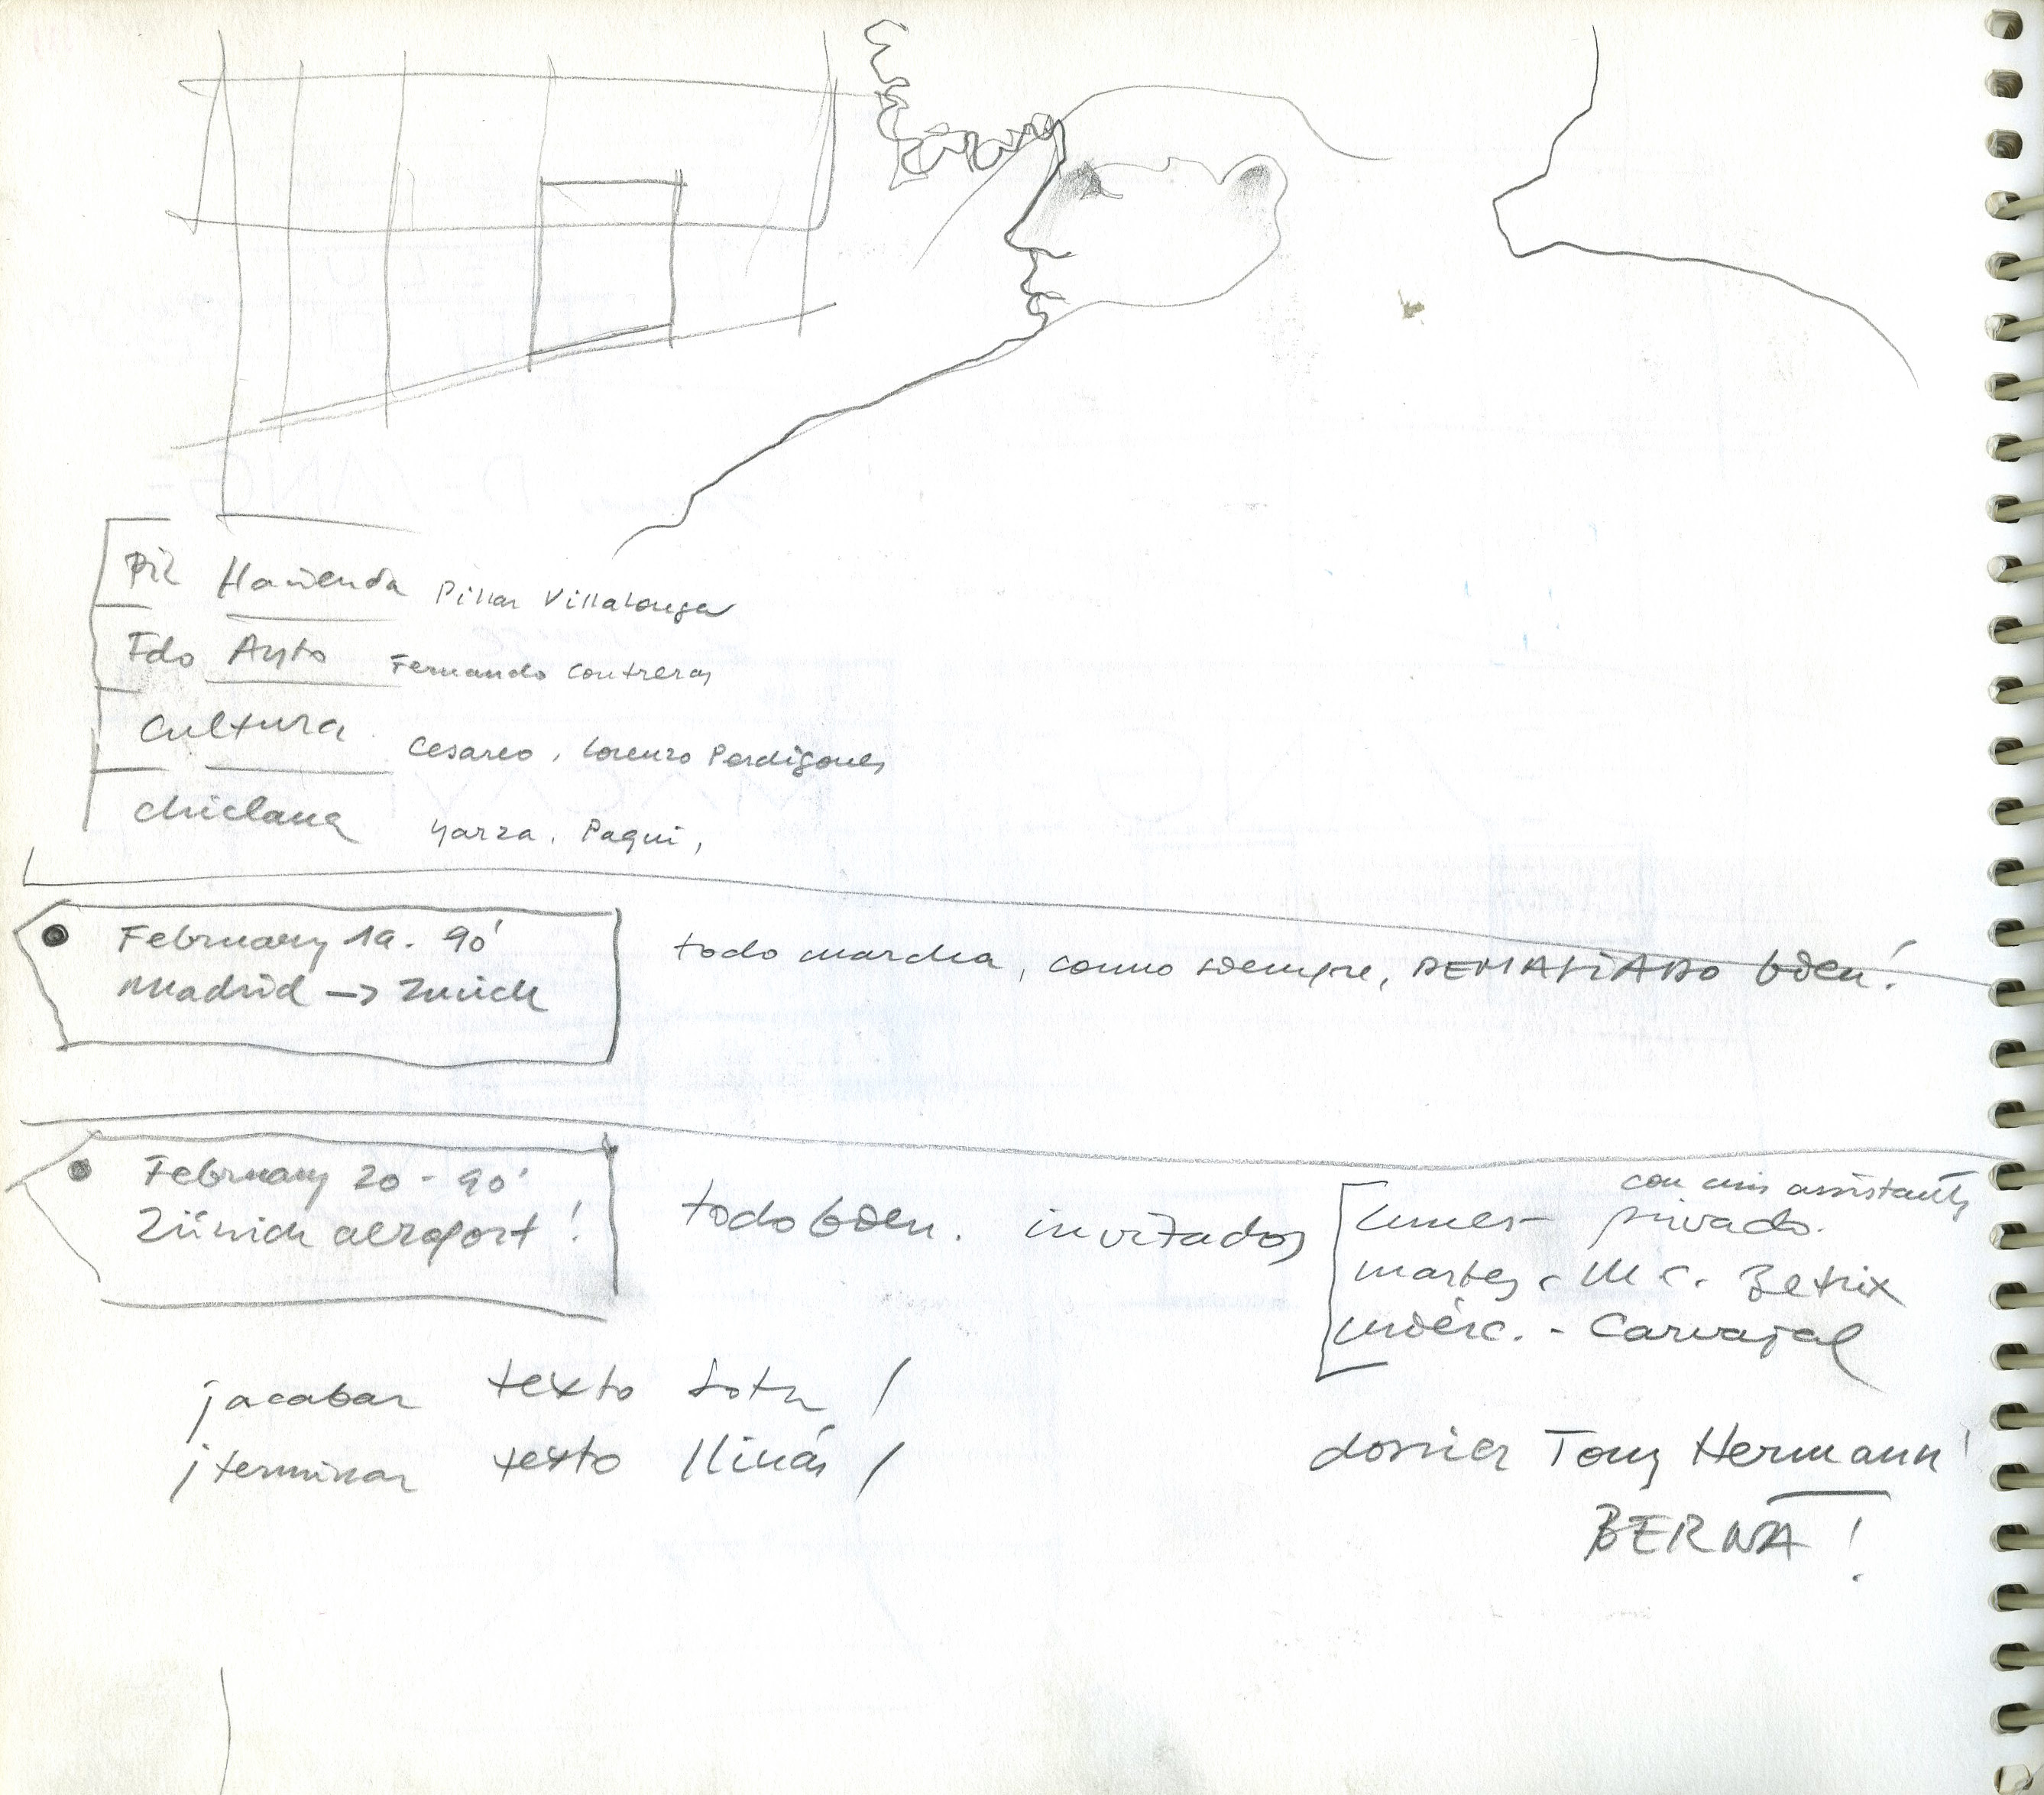 Pil Hacienda Pilar Villalonga
Fdo Ayto Fernando Contreras
Cultura. Cesareo, Lorenzo Perdigones
Chiclana Yarza. Paqui,
February 19. 90'
Madrid → Zurich
todo marcha, como siempre, DEMASIADO bien!
February 20 - 90'
Zürich aeroport!
todo bien. invitados
con mis assistants
lunes - privado.
martes - M.C. Betrix
miérc. - Carvajal
¡acabar texto Sota!
¡terminar texto llinás!
dossier Tony Hermann!
BERNA!